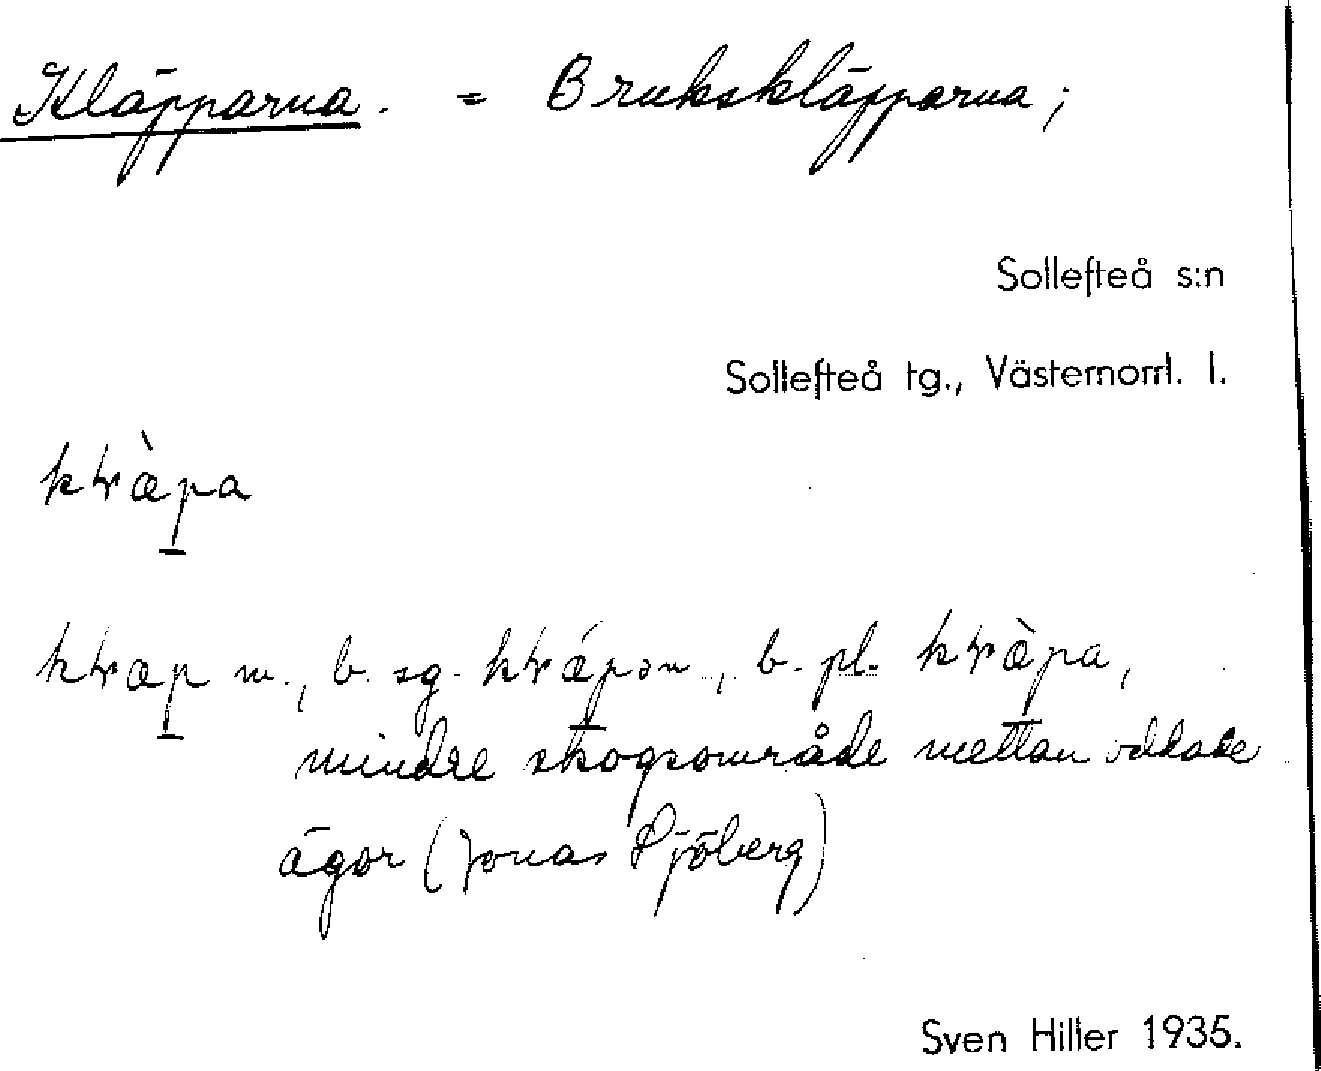 Kläpparna. = Brukskläpparna;
Sollefteå s:n
Sollefteå tg., Västernorrl. l.
klræ̀pa
klræp m., b. sg. klrǽpən, b. pl. klræ̀pa,
mindre skogsområde mellan odlade
ägor (Jonas Sjöberg)
Sven Hiller 1935.